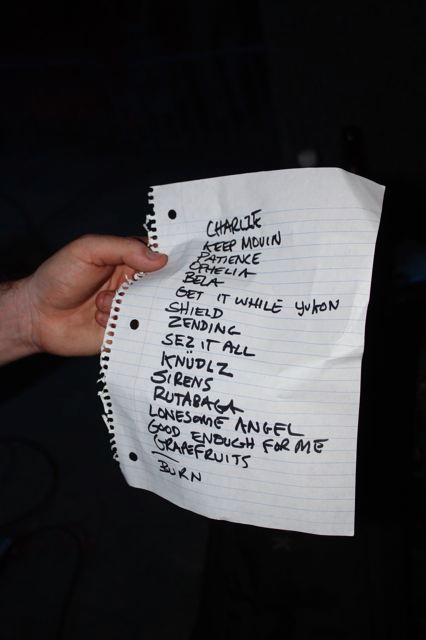 CHARLIE
KEEP MOVIN
PATIENCE
OPHELIA
BELA
GET IT WHILE YUKON
SHIELD
ZENDING
SEZ IT ALL
KNÜDLZ
SIRENS
RUTABAGA
LONESOME ANGEL
GOOD ENOUGH FOR ME
GRAPEFRUITS
BURN